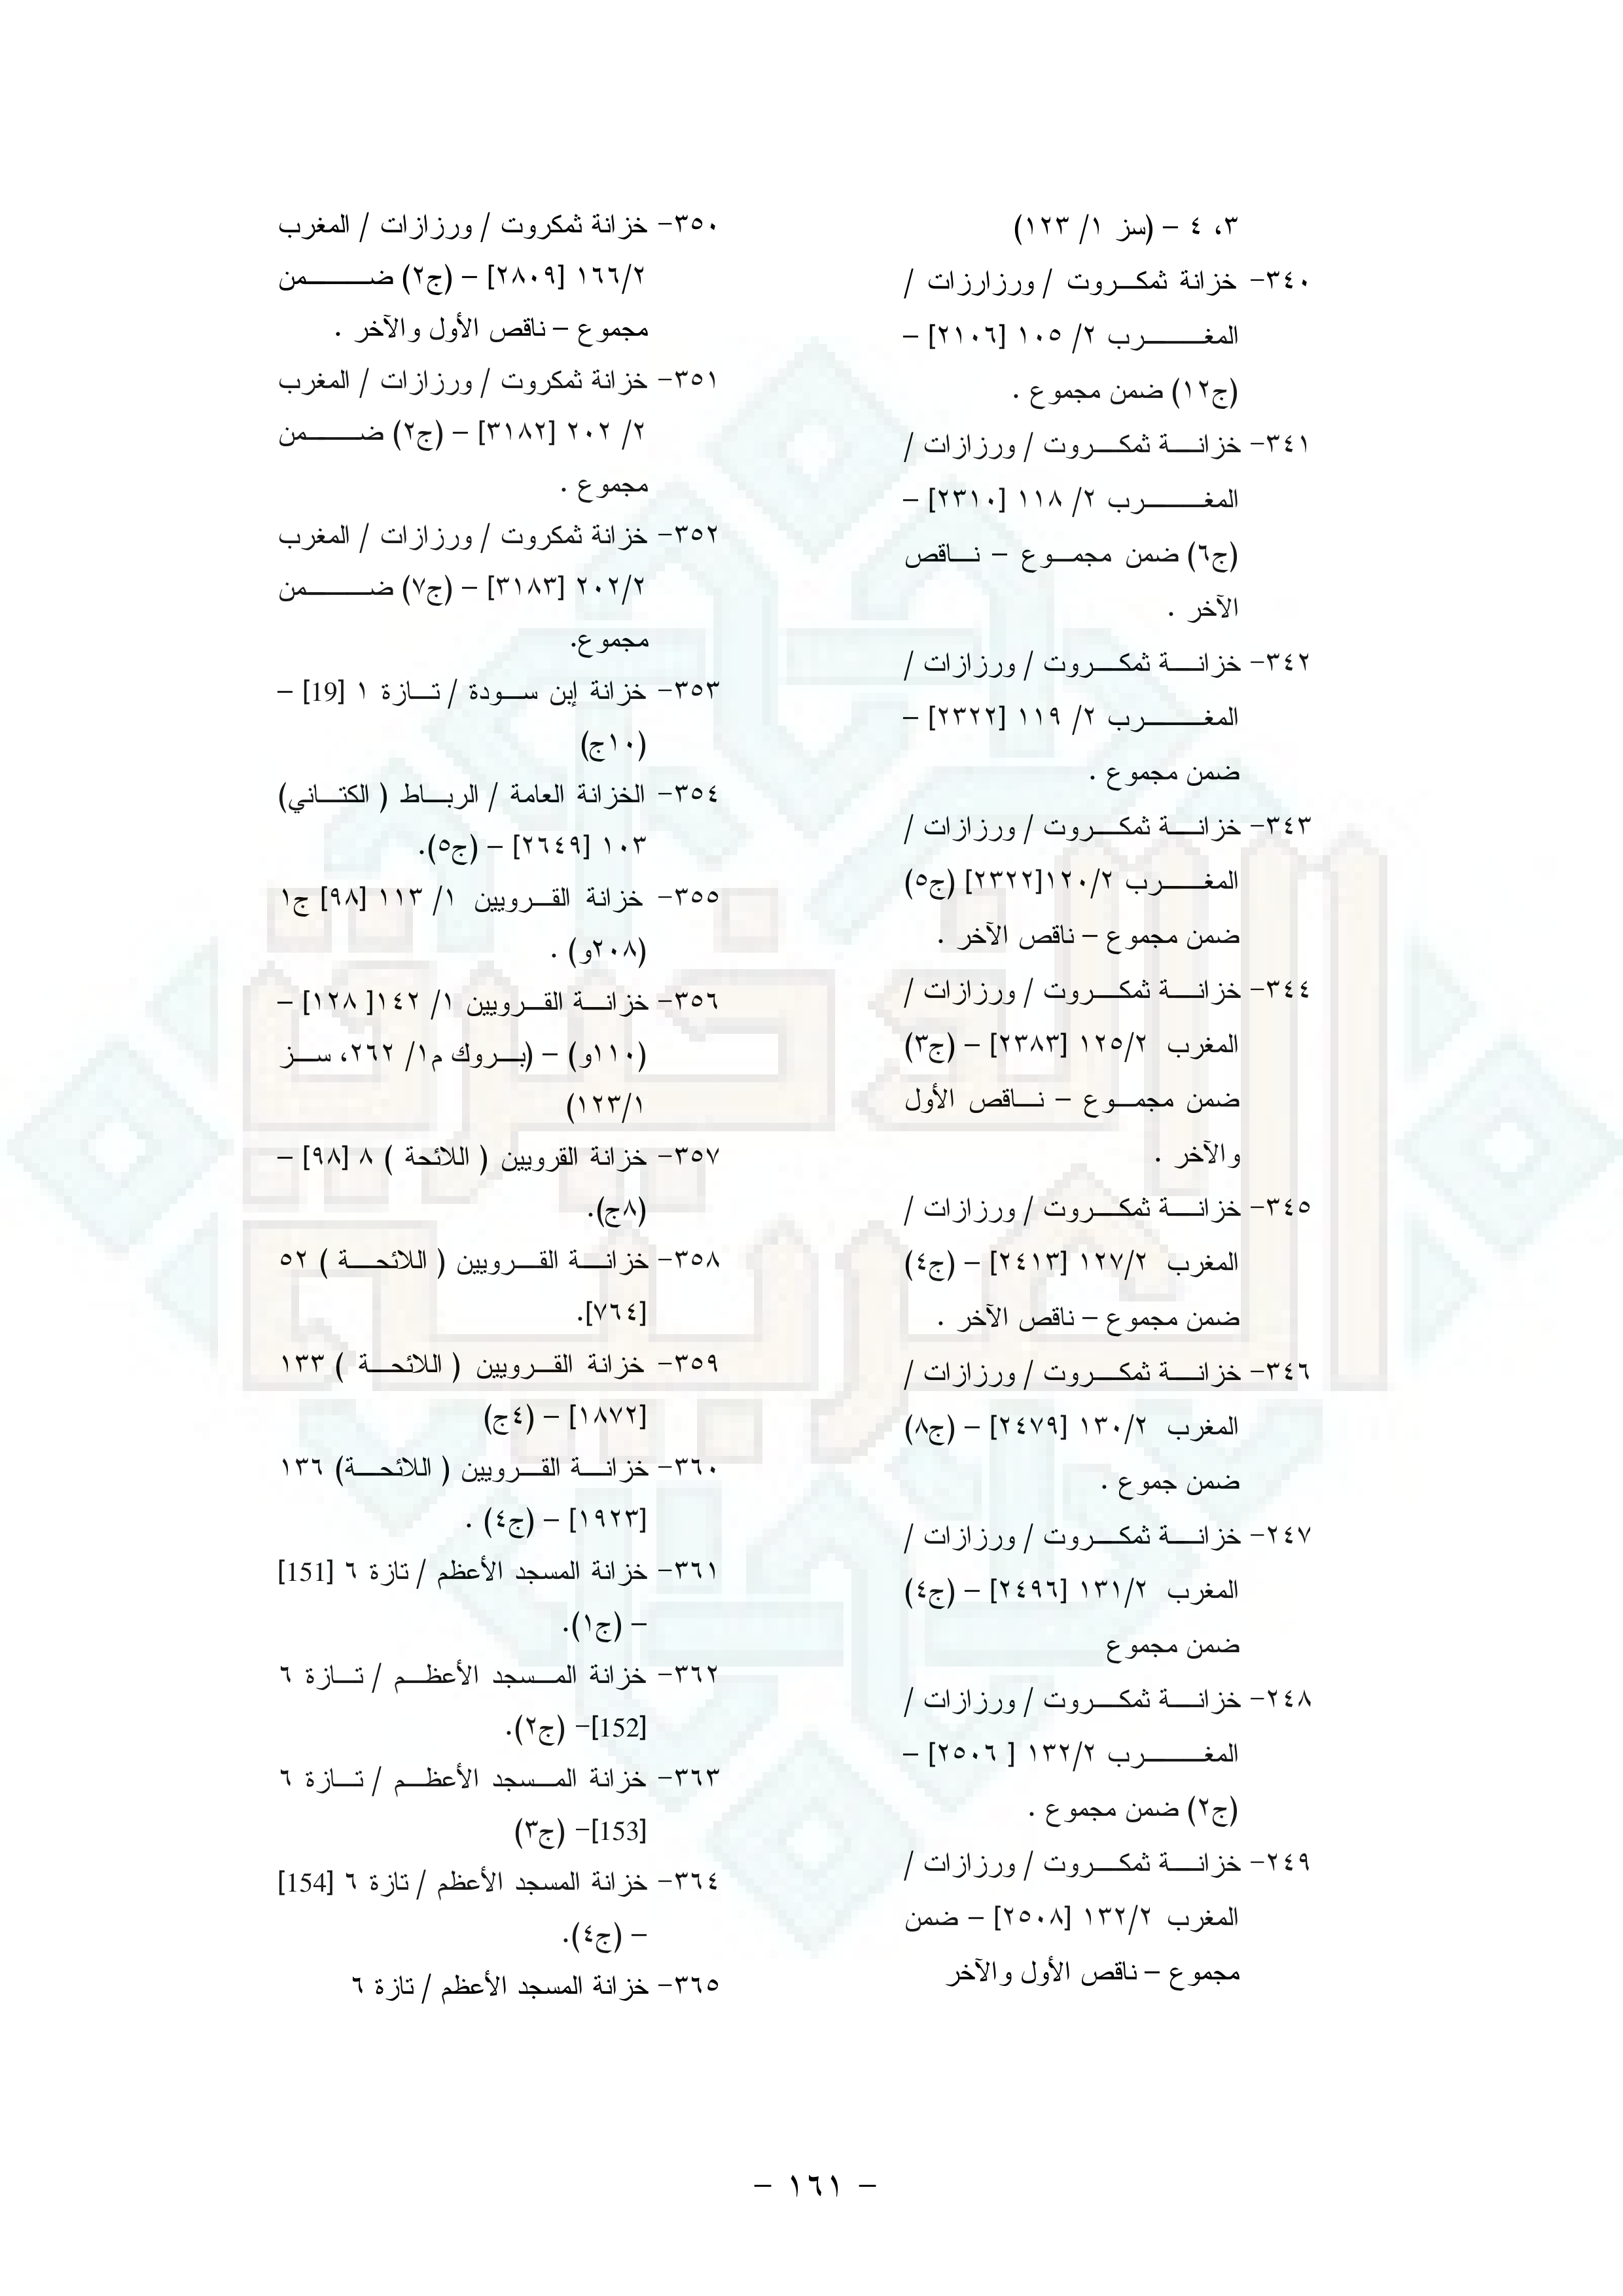 ٣، ٤ – (سز ١/ ١٢٣)
٣٤٠- خزانة ثمكروت / ورزارزات /
المغرب ٢/ ١٠٥ [٢١٠٦] –
(ج١٢) ضمن مجموع .
٣٤١- خزانة ثمكروت / ورزازات /
المغرب ٢/ ١١٨ [٢٣١٠] –
(ج٦) ضمن مجموع – ناقص
الآخر .
٣٤٢- خزانة ثمكروت / ورزازات /
المغرب ٢/ ١١٩ [٢٣٢٢] –
ضمن مجموع .
٣٤٣- خزانة ثمكروت / ورزازات /
المغرب ١٢٠/٢[٢٣٢٢] (ج٥)
ضمن مجموع – ناقص الآخر .
٣٤٤- خزانة ثمكروت / ورزازات /
المغرب ١٢٥/٢ [٢٣٨٣] – (ج٣)
ضمن مجموع – ناقص الأول
والآخر .
٣٤٥- خزانة ثمكروت / ورزازات /
المغرب ١٢٧/٢ [٢٤١٣] – (ج٤)
ضمن مجموع – ناقص الآخر .
٣٤٦- خزانة ثمكروت / ورزازات /
المغرب ١٣٠/٢ [٢٤٧٩] – (ج٨)
ضمن جموع .
٢٤٧- خزانة ثمكروت / ورزازات /
المغرب ١٣١/٢ [٢٤٩٦] – (ج٤)
ضمن مجموع
٢٤٨- خزانة ثمكروت / ورزازات /
المغرب ١٣٢/٢ [ ٢٥٠٦] –
(ج٢) ضمن مجموع .
٢٤٩- خزانة ثمكروت / ورزازات /
المغرب ١٣٢/٢ [٢٥٠٨] – ضمن
مجموع – ناقص الأول والآخر
٣٥٠- خزانة ثمكروت / ورزازات / المغرب
١٦٦/٢ [٢٨٠٩] – (ج٢) ضمن
مجموع – ناقص الأول والآخر .
٣٥١- خزانة ثمكروت / ورزازات / المغرب
٢/ ٢٠٢ [٣١٨٢] – (ج٢) ضمن
مجموع .
٣٥٢- خزانة ثمكروت / ورزازات / المغرب
٢٠٢/٢ [٣١٨٣] – (ج٧) ضمن
مجموع.
٣٥٣- خزانة إبن سودة / تازة ١ [19] –
(١٠ج)
٣٥٤- الخزانة العامة / الرباط ( الكتاني)
١٠٣ [٢٦٤٩] – (ج٥).
٣٥٥- خزانة القرويين ١/ ١١٣ [٩٨] ج١
(٢٠٨و) .
٣٥٦- خزانة القرويين ١/ ١٤٢[ ١٢٨] –
(١١٠و) – (بروك م١/ ٢٦٢، سز
١٢٣/١)
٣٥٧- خزانة القرويين ( اللائحة ) ٨ [٩٨] –
(٨ج).
٣٥٨- خزانة القرويين ( اللائحة ) ٥٢
[٧٦٤].
٣٥٩- خزانة القرويين ( اللائحة ) ١٣٣
[١٨٧٢] – (٤ج)
٣٦٠- خزانة القرويين ( اللائحة) ١٣٦
[١٩٢٣] – (ج٤) .
٣٦١- خزانة المسجد الأعظم / تازة ٦ [151]
– (ج١).
٣٦٢- خزانة المسجد الأعظم / تازة ٦
[152]- (ج٢).
٣٦٣- خزانة المسجد الأعظم / تازة ٦
[153]- (ج٣)
٣٦٤- خزانة المسجد الأعظم / تازة ٦ [154]
– (ج٤).
٣٦٥- خزانة المسجد الأعظم / تازة ٦
– ١٦١ –